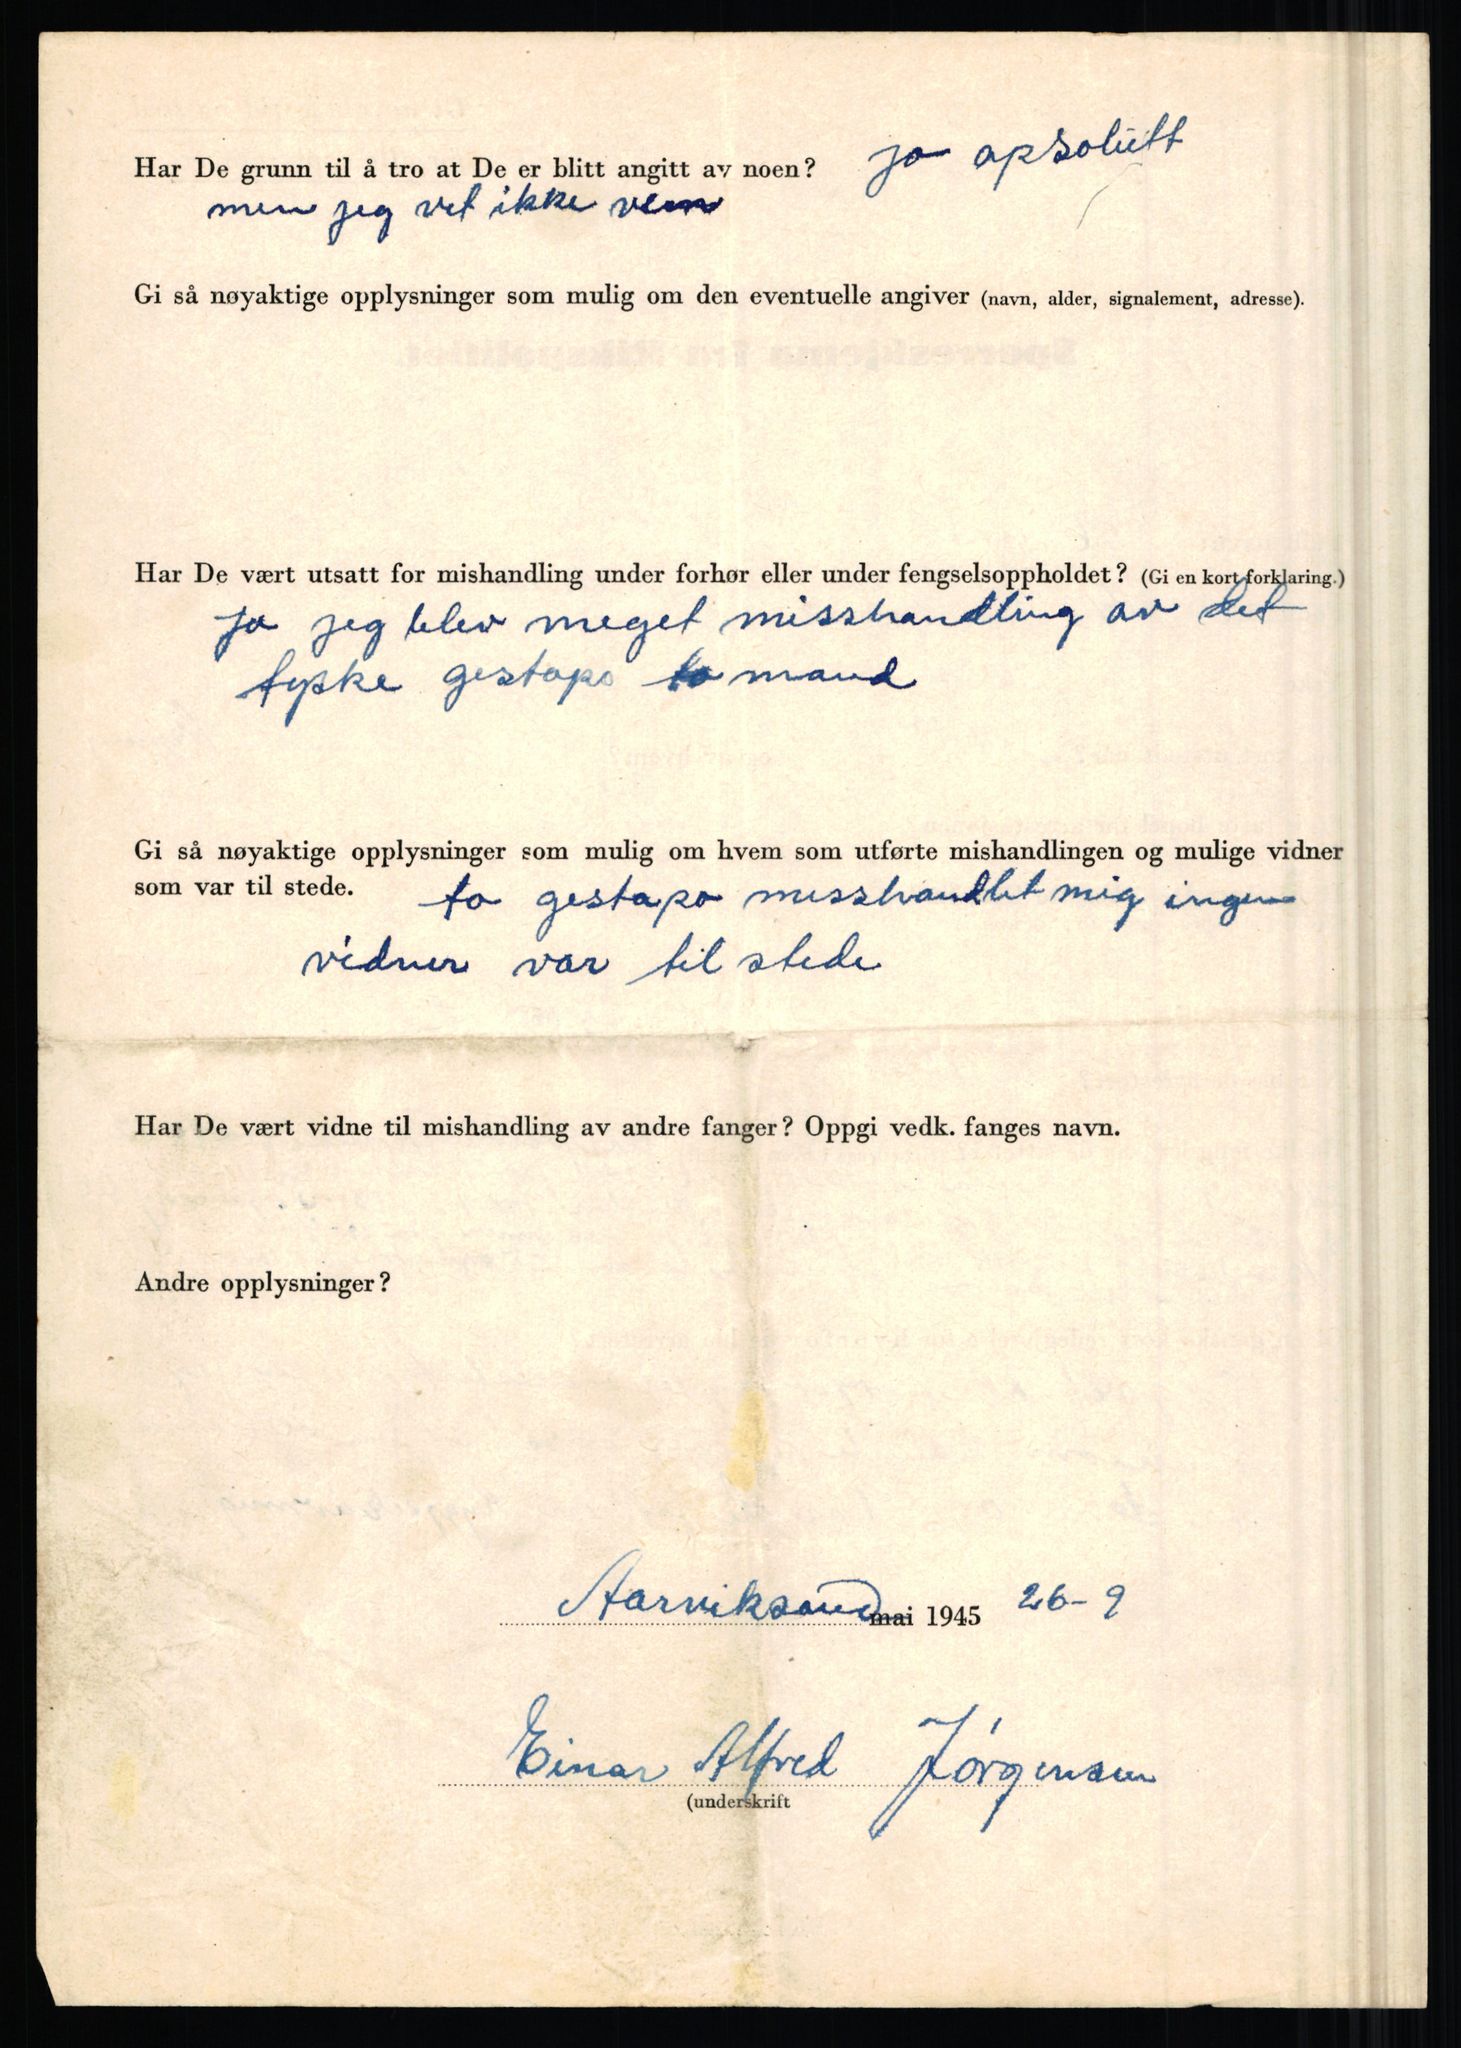 Har De grunn til å tro at De er blitt angitt av noen? ja apsolutt
men jeg vet ikke vem
Gi så nøyaktige opplysninger som mulig om den eventuelle angiver (navn, alder, signalement, adresse).
Har De vært utsatt for mishandling under forhør eller under fengselsoppholdet? (Gi en kort forklaring.)
ja jeg blev meget misshandling av det
tyske gestapo mand
Gi så nøyaktige opplysninger som mulig om hvem som utførte mishandlingen og mulige vidner
som var til stede. to gestapo misshandlet mig ingen
vidner var til stede
Har De vært vidne til mishandling av andre fanger? Oppgi vedk. fanges navn.
Andre opplysninger?
Aarviksand mai 1945 26-9
Einar Alfred Jørgensen
(underskrift